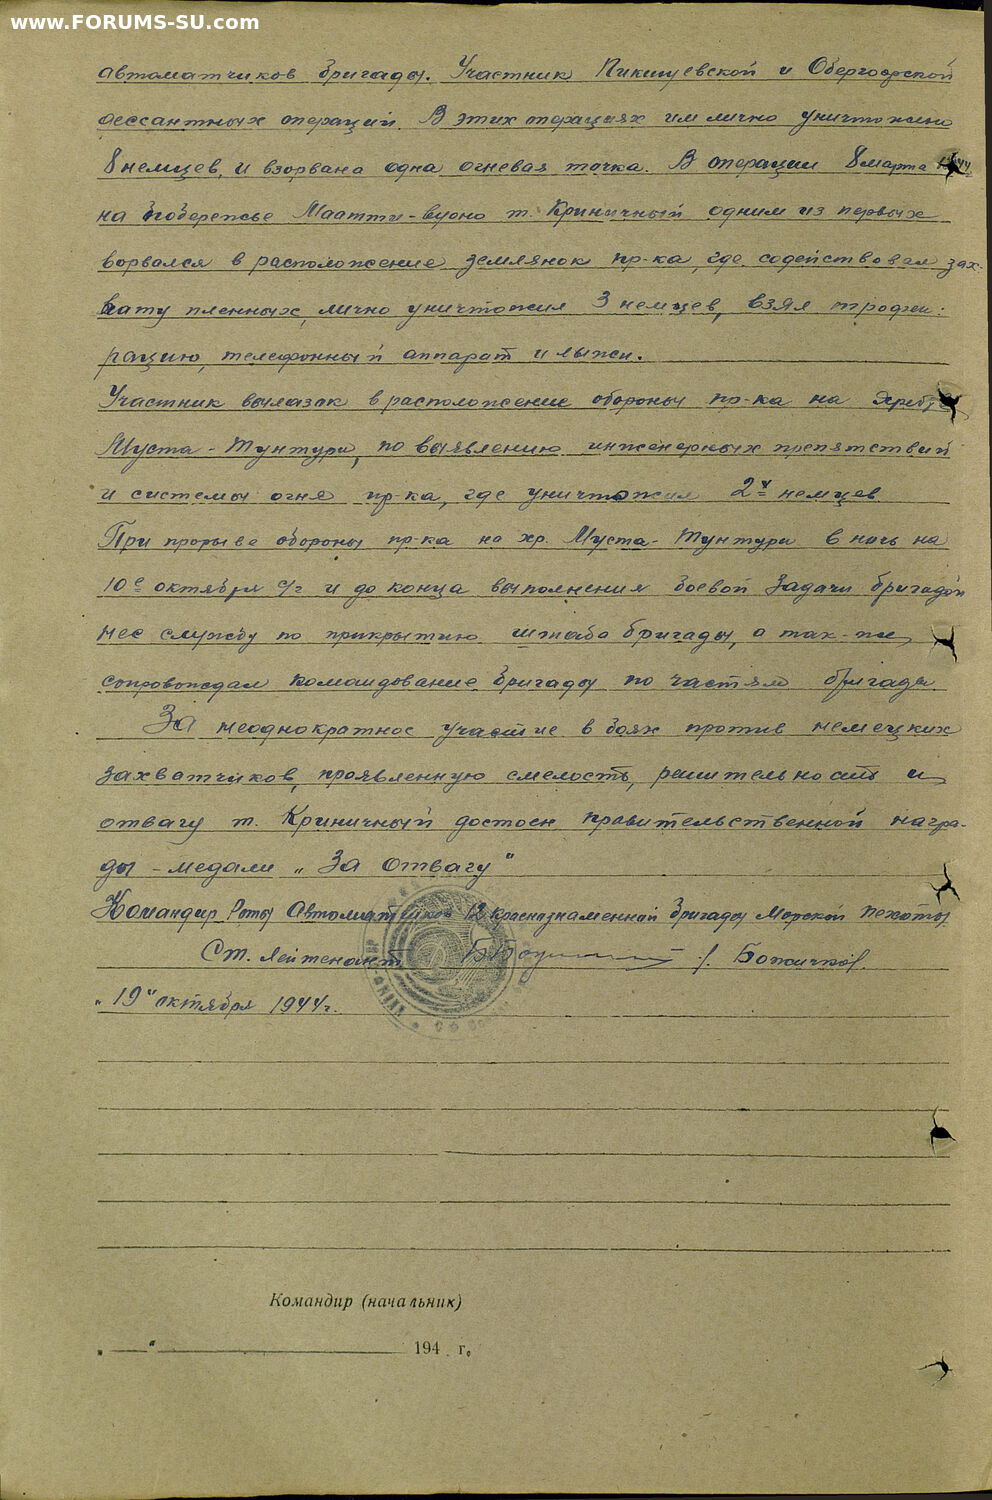 www.FORUMS-SU.com
автоматчиков бригады. Участник Пикшуевской и Обергофской
дессантных операций. В этих операциях им лично уничтожено
8 немцев, и взорвана одна огневая точка. В операции 8 марта
на побережье Маатти-вуоно т. Криничный одним из первых
ворвался в расположение землянок пр-ка, где содействовал зах-
вату пленных, лично уничтожил 3 немцев, взял трофеи:
рацию, телефонный аппарат и лыжи.
Участник вылазак в расположение обороны пр-ка на хребте
Муста-Тунтури, по выявлению инженерных препятствий
и системы огня пр-ка, где уничтожил 2х немцев
При прорыве обороны пр-ка на хр. Муста-Тунтури в ночь на
10е октября с/г и до конца выполнения боевой задачи бригадой
нес службу по прикрытию штаба бригады, а так-же
сопровождал командование бригады по частям бригады.
За неоднократное участие в боях против немецких
захватчиков, проявленную смелость, решительность и
отвагу т. Криничный достоен правительственной награ-
ды - медали „За отвагу"
Командир Роты Автоматчиков 12 Краснознаменной бригады Морской пехоты
Ст. лейтенант /. Божичков/.
„19" октября 1944г.
Командир (начальник)
„ " 194 г.